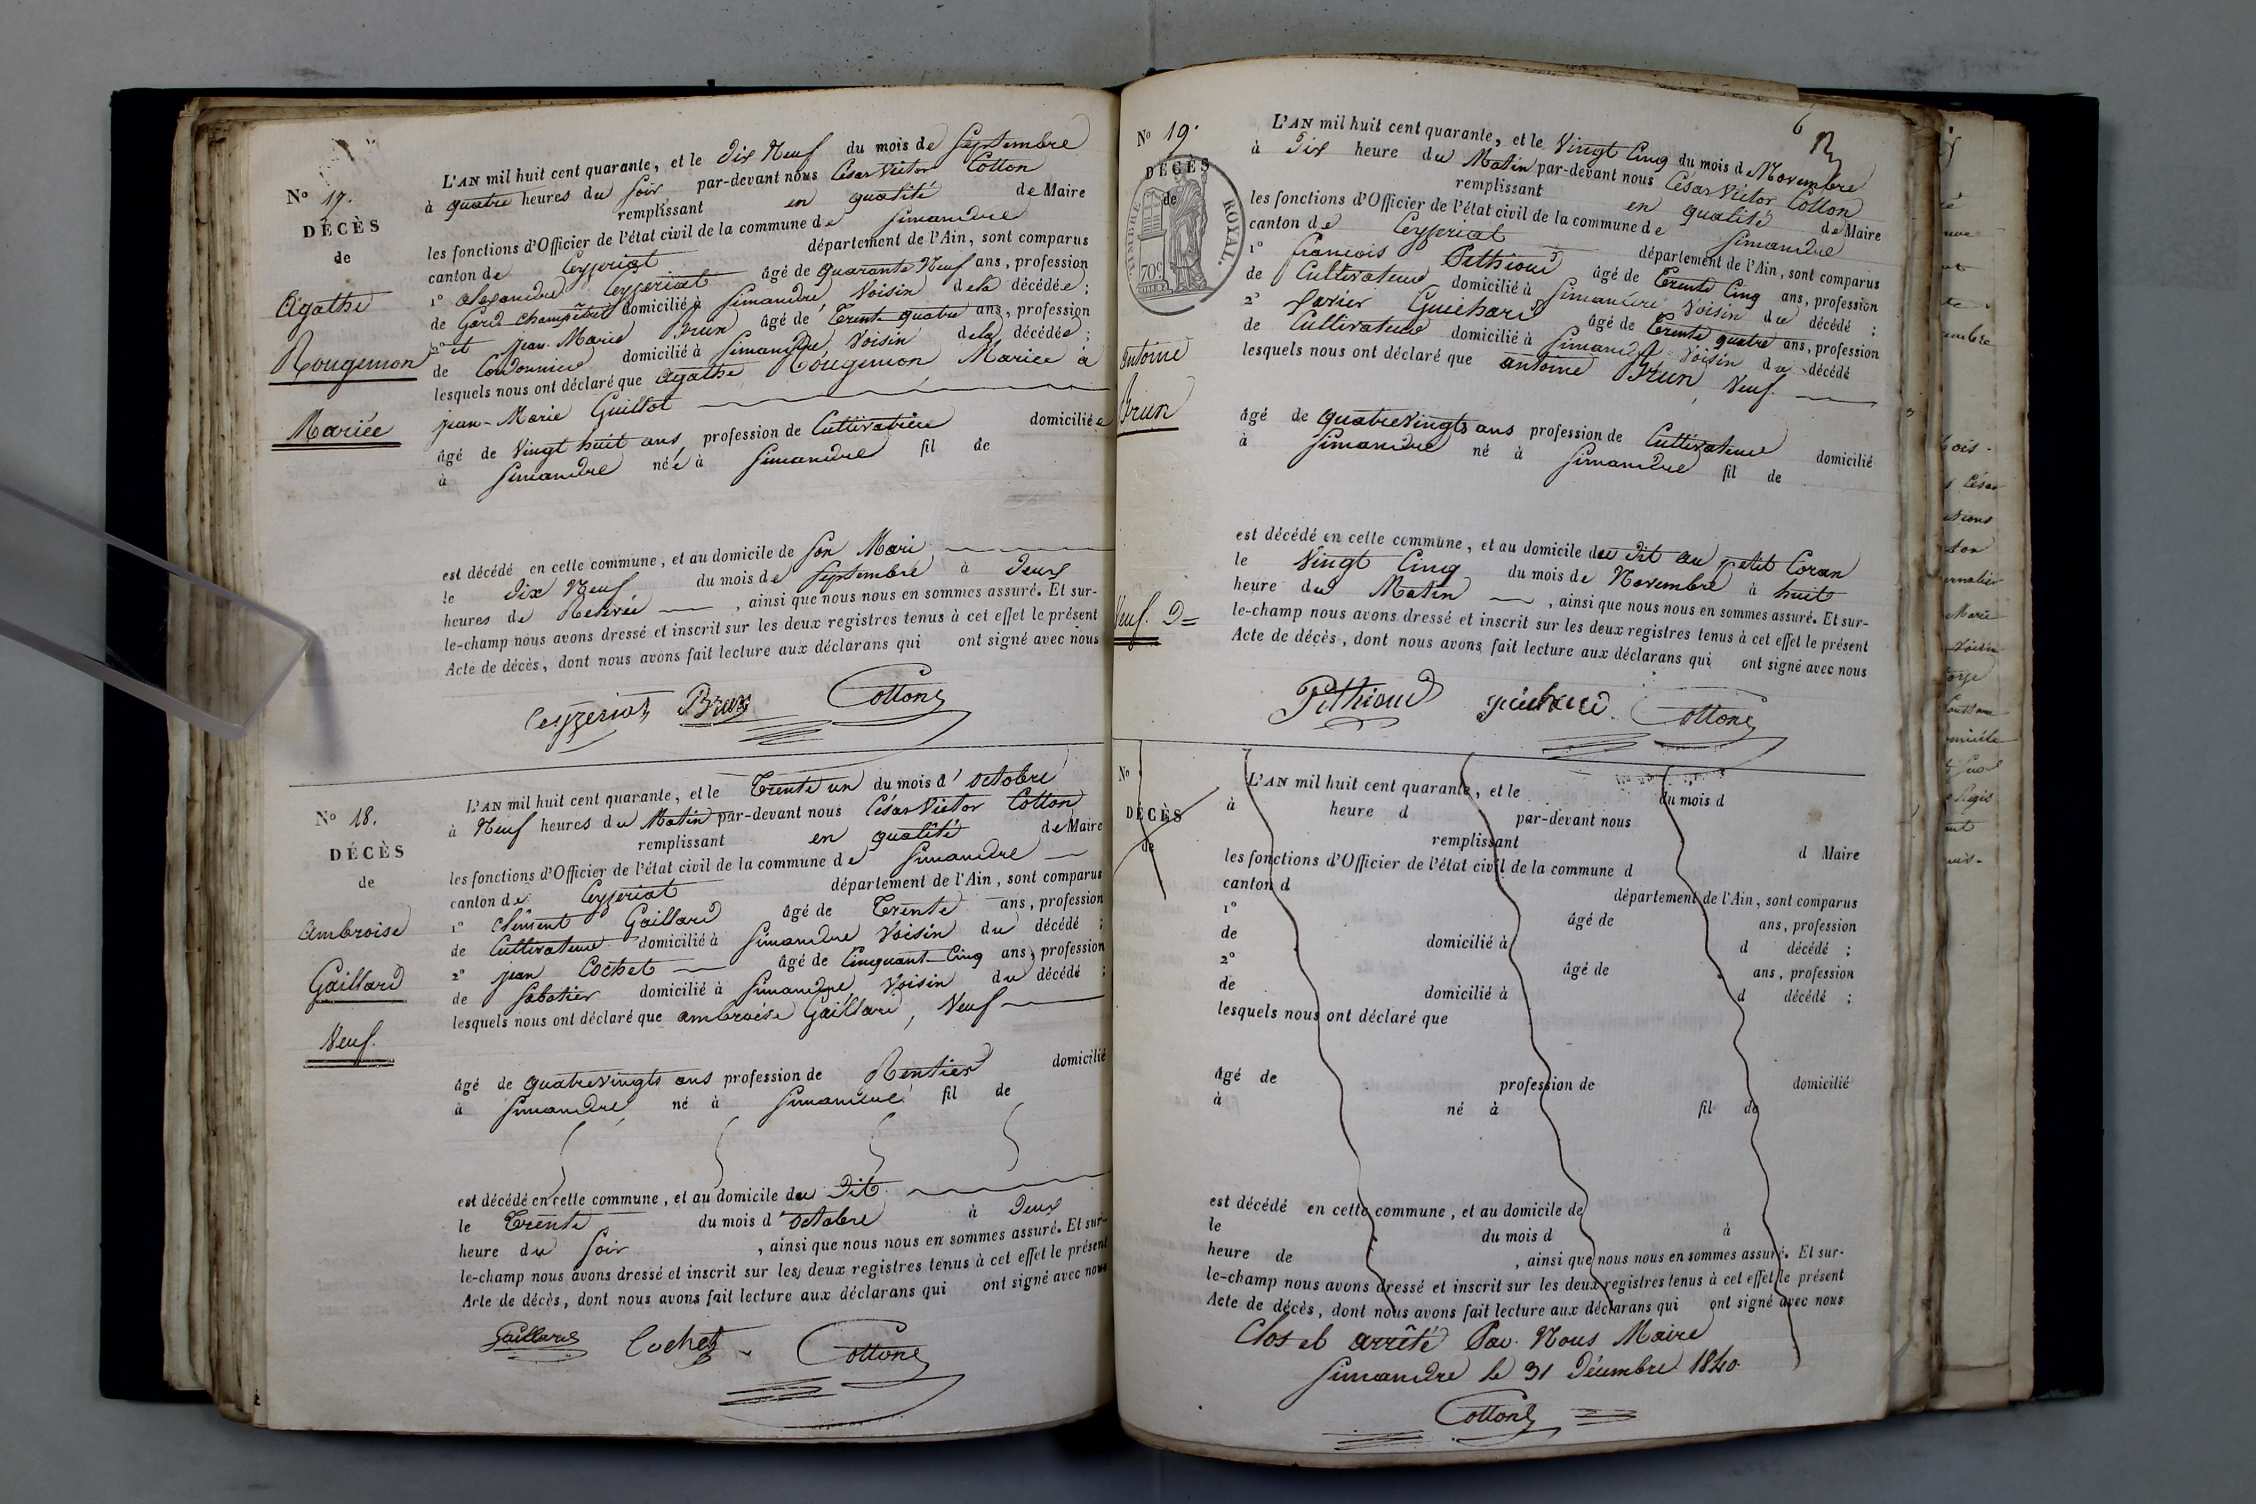 No 17.
DÉCÈS
de
Agathe
Rougemon
Mariée
L'AN mil huit cent quarante, et le dix Neuf du mois de Septembre
à quatre heures du Soir par-devant nous César Victor Cotton
remplissant en qualité de Maire
les fonctions d'Officier de l'état civil de la commune de Simandre
canton de Ceyzeriat département de l'Ain, sont comparus
1o alexandre Ceyzeriat âgé de quarante Neuf ans, profession
de Gard champêtre domicilié à Simandre Voisin de la décédée ;
2o et jean-Marie Brun âgé de Trente quatre ans, profession
de Cordonnier domicilié à Simandre Voisin de la décédée ;
lesquels nous ont déclaré que Agathe Rougemon Mariée à
jean-Marie Guillot
âgé de Vingt huit ans profession de Cultivatrice domiciliée
à Simandre née à Simandre fil de
est décédé en celle commune, et au domicile de Son Mari
le dix Neuf du mois de Septembre à Deux
heures de Relevée , ainsi que nous nous en sommes assuré. Et sur-
le-champ nous avons dressé et inscrit sur les deux registres tenus à cet effet le présent
Acte de décès, dont nous avons fait lecture aux déclarans qui ont signé avec nous
Ceyzeriat Brun Cotton
No 18.
DÉCÈS
de
Ambroise
Gaillard
Veuf.
L'AN mil huit cent quarante, et le Trente un du mois d'octobre
à Neuf heures du Matin par-devant nous César Victor Cotton
remplissant en qualité de Maire
les fonctions d'Officier de l'état civil de la commune de Simandre
canton de Ceyzeriat département de l'Ain, sont comparus
1o Clément Gaillard âgé de Trente ans, profession
de Cultivateur domicilié à Simandre Voisin du décédé ;
2o jean Cochet âgé de Cinquant Cinq ans, profession
de Sabotier domicilié à Simandre Voisin du décédé ;
lesquels nous ont déclaré que ambroise Gaillard, Veuf
âgé de quatrevingts ans profession de Rentier domicilié
à Simandre né à Simandre fil de
est décédé en cette commune, et au domicile du Dit
le Trente du mois d'octobre à Deux
heure du Soir , ainsi que nous nous en sommes assuré. Et sur-
le-champ nous avons dressé et inscrit sur les deux registres tenus à cet effet le présent
Acte de décès, dont nous avons fait lecture aux déclarans qui ont signé avec nous
Gaillard Cochet Cotton
6
No 19.
DÉCÈS
de
TIMBRE ROYAL.
70c
Antoine
Brun
Veuf. D=
L'AN mil huit cent quarante, et le Vingt Cinq du mois de Novembre
à Dix heure du Matin par-devant nous César Victor Cotton
remplissant en qualité de Maire
les fonctions d'Officier de l'état civil de la commune de Simandre
canton de Ceyzeriat département de l'Ain, sont comparus
1o francois Pethioud âgé de Trente Cinq ans, profession
de Cultivateur domicilié à Simandre Voisin du décédé ;
2o Xavier Guichard âgé de Trente quatre ans, profession
de Cultivateur domicilié à Simandre Voisin du décédé
lesquels nous ont déclaré que antoine Brun, Veuf.
âgé de quatrevingts ans profession de Cultivateur domicilié
à Simandre né à Simandre fil de
est décédé en celle commune, et au domicile du dit au petit Coran
le Vingt Cinq du mois de Novembre à huit
heure du Matin , ainsi que nous nous en sommes assuré. Et sur-
le-champ nous avons dressé et inscrit sur les deux registres tenus à cet effet le présent
Acte de décès, dont nous avons fait lecture aux déclarans qui ont signé avec nous
Pethioud guichard Cotton
No
DÉCÈS
de
L'AN mil huit cent quarante, et le du mois d
à heure d par-devant nous
remplissant d Maire
les fonctions d'Officier de l'état civil de la commune d
canton d département de l'Ain, sont comparus
1o âgé de ans, profession
de domicilié à d décédé ;
2o âgé de ans, profession
de domicilié à d décédé ;
lesquels nous ont déclaré que
âgé de profession de domicilié
à né à fil de
est décédé en cette commune, et au domicile de
le du mois d à
heure de , ainsi que nous nous en sommes assuré. Et sur-
le-champ nous avons dressé et inscrit sur les deux registres tenus à cet effet le présent
Acte de décès, dont nous avons fait lecture aux déclarans qui ont signé avec nous
Clos et arrêté Par Nous Maire
Simandre le 31 Décembre 1840.
Cotton